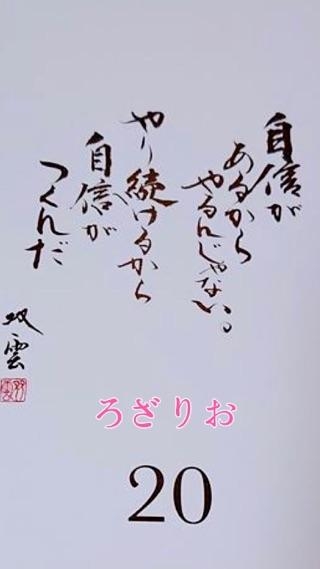 自信が
あるから
やるんじゃない。
やり続けるから
自信が
つくんだ
双雲
ろざりお
20